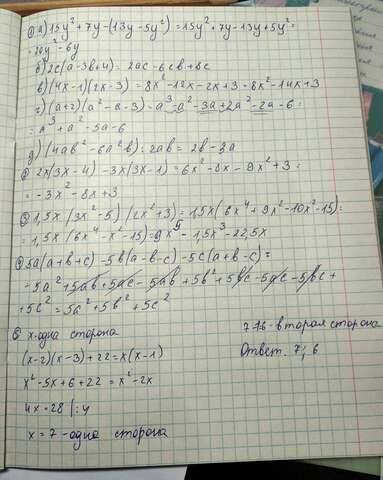 ① а) 15y² + 7y - (13y - 5y²) = 15y² + 7y - 13y + 5y² =
= 20y² - 6y
б) 2c(a - 3b + 4) = 2ac - 6cb + 8c
в) (4x - 1)(2x - 3) = 8x² - 12x - 2x + 3 = 8x² - 14x + 3
г) (a + 2)(a² - a - 3) = a³ - a² - 3a + 2a² - 2a - 6 =
= a³ + a² - 5a - 6
д) (4ab² - 6a²b) : 2ab = 2b - 3a
② 2x(3x - 4) - 3x(3x - 1) = 6x² - 8x - 9x² + 3 =
= -3x² - 8x + 3
③ 1,5x (3x² - 5)(2x² + 3) = 1,5x (6x⁴ + 9x² - 10x² - 15) =
= 1,5x (6x⁴ - x² - 15) = 9x⁵ - 1,5x³ - 22,5x
④ 5a(a + b + c) - 5b(a - b - c) - 5c(a + b - c) =
= 5a² + 5ab + 5ac - 5ab + 5b² + 5bc - 5ac - 5bc +
+ 5c² = 5a² + 5b² + 5c²
x - одна сторона
7-1=6 - вторая сторона
(x - 2)(x - 3) + 22 = x(x - 1)
Ответ. 7; 6
x² - 5x + 6 + 22 = x² - 2x
4x = 28 | : 4
x = 7 - одна сторона